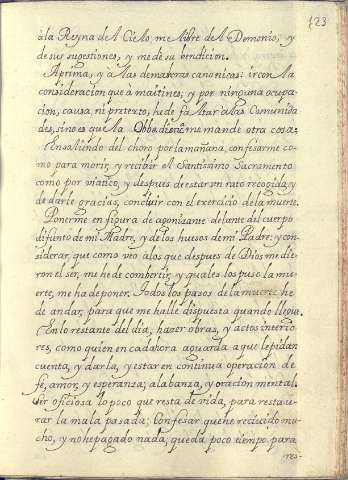 123
à la Reyna de el Cielo, me libre de el Demonio, y
de sus sugestiones, y me dè su bendicion.
A prima, y a las demas oras canonicas: ir con la
consideracion que a maitines; y por ninguna ocupa
cion, causa ni pretexto, he de faltar a las Comunida
des, sino es que la Obbediencia me mande otra cosa:
En saliendo del choro por la mañana, confesarme co-
mo para morir, y recibir el Santissimo Sacramento
como por viatico, y despues de estar un rato recogida, y
de darle gracias, concluir con el exercicio de la muerte.
Ponerme en figura de agonizante delante del cuerpo
difunto de mi Madre, y de los huesos de mi Padre: y con-
siderar, que como veo a los que despues de Dios me die-
ron el ser, me he de combertir, y quales los puso la mu
erte, me ha de poner. Todos los pasos de la muerte he
de andar, para que me halle dispuesta quando llegue.
En lo restante del dia, hazer obras, y actos interio
res, como quien en cada hora aguarda a que le pidan
cuenta, y darla, y estar en continua operacion de
fe, amor, y esperanza; alabanza, y oracion mental.
Ser oficiosa lo poco que resta de vida, para restau-
rar la mala pasada: Confesar que he recivido mu-
cho, y no he pagado nada, queda poco tiempo para
res-